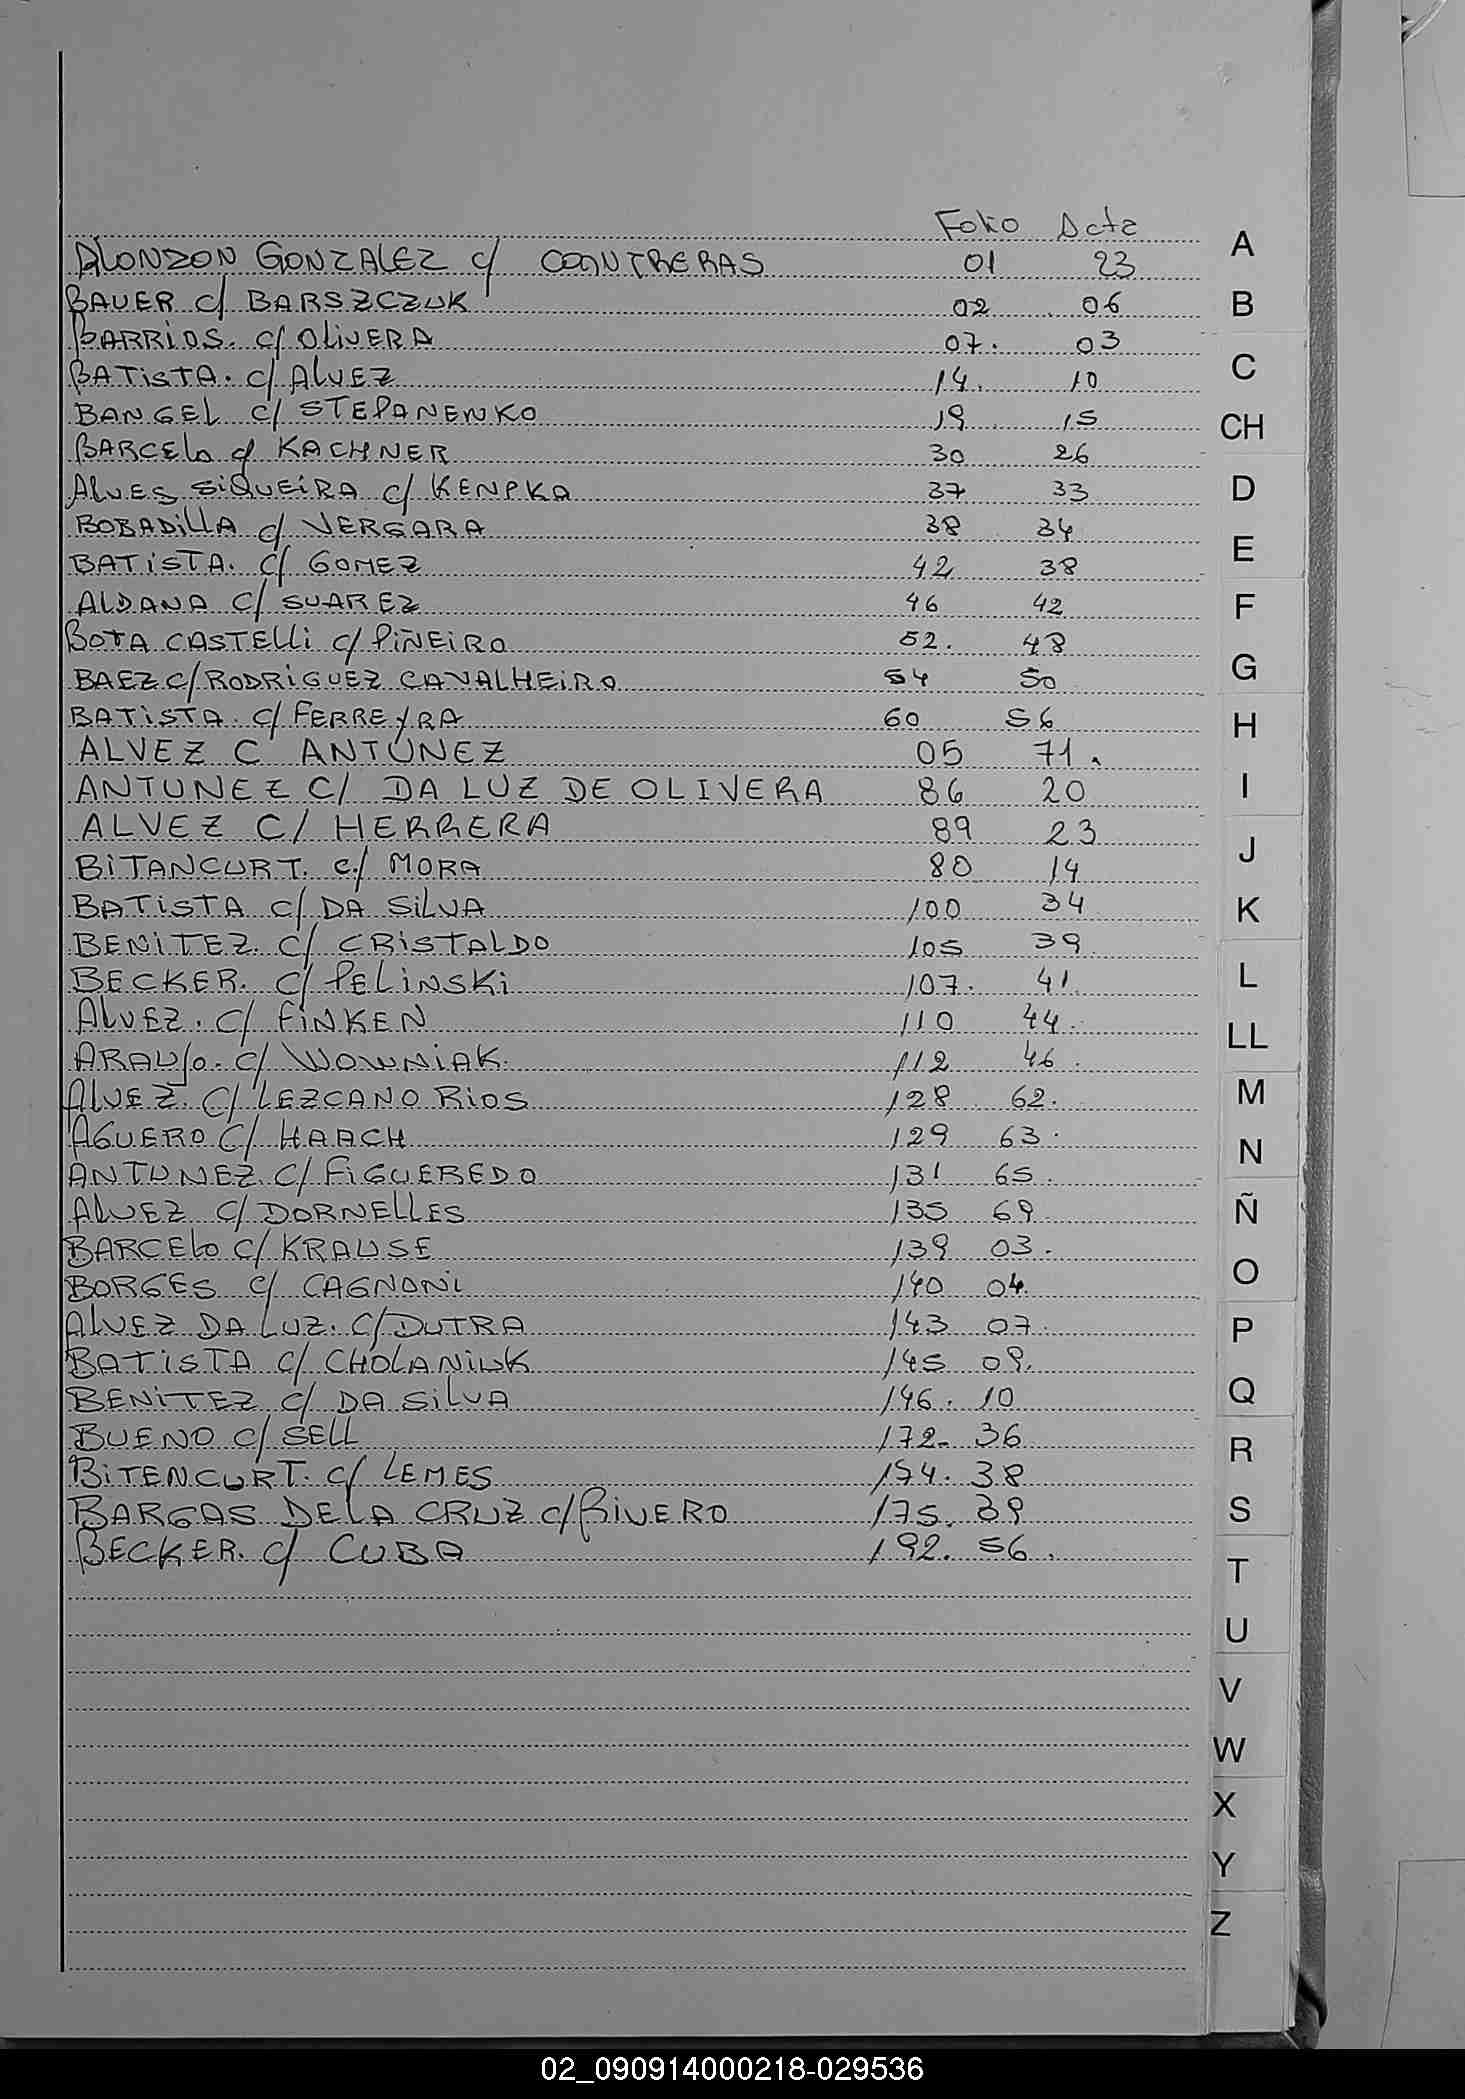 Folio Acta
ALONZON GONZALEZ c/ CONTRERAS 01 23
BAUER c/ BARSZCZUK 02 06
BARRiOS. c/ OLiVERA 07. 03
BATiSTA. c/ ALVEZ 14. 10
BANGEL c/ STEPANENKO 19 15
BARCELo c/ KACHNER 30 26
ALVES SiQUEiRA c/ KENPKA 37 33
BOBADiLLA c/ VERGARA 38 34
BATiSTA. c/ GOMEZ 42 38
ALDANA c/ SUAREZ 46 42
BOTA CASTELLi c/ PiÑEiRO 52. 48
BAEZ c/ RODRiGUEZ CAVALHEiRO 54 50
BATiSTA. c/ FERREyRA 60 56
ALVEZ C ANTUNEZ 05 71.
ANTUNEZ C/ DA LUZ DE OLIVERA 86 20
ALVEZ C/ HERRERA 89 23
BiTANCURT. c/ MORA 80 14
BATiSTA c/ DA SiLVA 100 34
BENiTEZ. c/ CRiSTALDO 105 39
BECKER. c/ PELiNSKi 107. 41.
ALVEZ. c/ FiNKEN 110 44.
ARAUJo. c/ WOWNiAK. 112 46.
ALVEZ. c/ LEZCANO RiOS 128 62.
AGUERO c/ HAACH 129 63.
ANTUNEZ. c/ FiGUEREDO 131 65.
ALVEZ c/ DORNELLES 135 69.
BARCELo c/ KRAUSE 139 03.
BORGES c/ CAGNONi 140 04.
ALVEZ DA LUZ. c/ DUTRA 143 07.
BATiSTA c/ CHOLANiUK 145 09.
BENiTEZ c/ DA SiLVA 146. 10
BUENO c/ SELL 172. 36
BiTENCURT. c/ LEMES 174. 38
BARGAS DE LA CRUZ c/ RiVERO 175. 39
BECKER. c/ CUBA 192. 56.
A
B
C
CH
D
E
F
G
H
I
J
K
L
LL
M
N
Ñ
O
P
Q
R
S
T
U
V
W
X
Y
Z
02_090914000218-029536